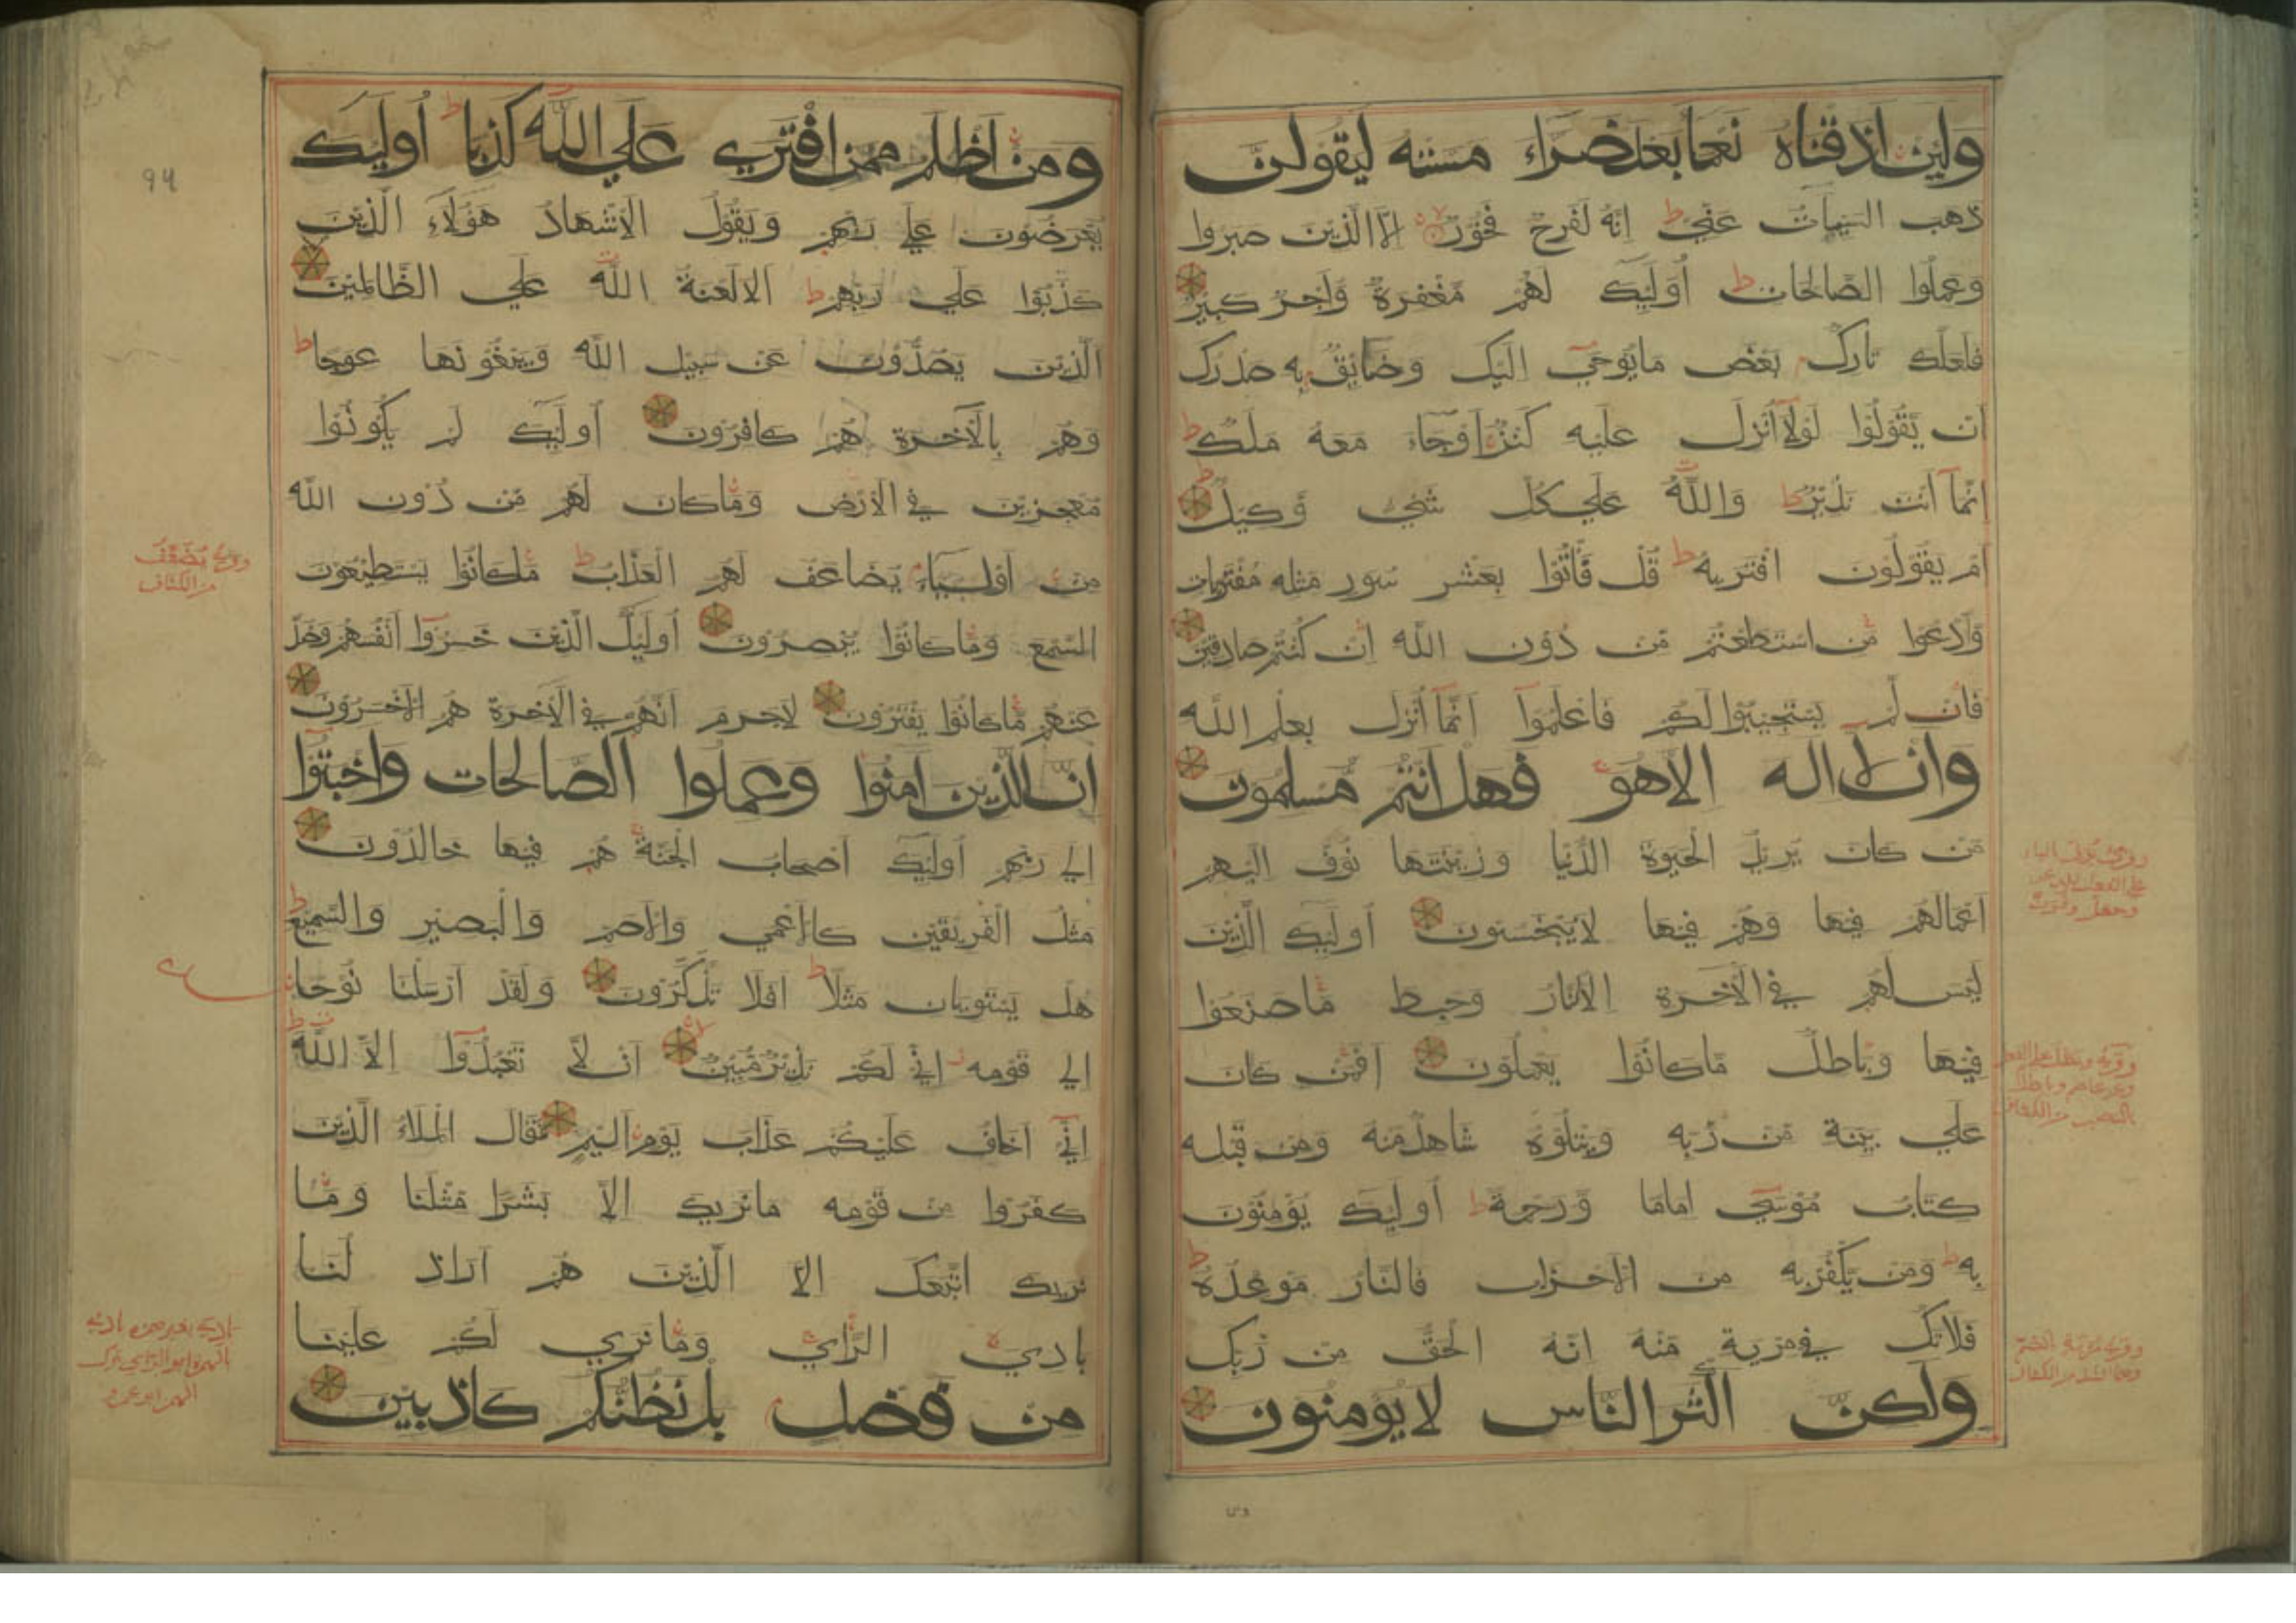 ولئن اذقناه نعما بعد ضراء مسته ليقولن
ذهب السيئات عني ط انه لفرح فخور الا الذين صبروا
وعملوا الصالحات ط أوليك لهم مغفرة واجر كبير
فلعلك تارك بعض ما يوحي اليك وضايق به صدرك
ان يقولوا لولا أنزل عليه كنز او جاء معه ملك ط
انما انت نذير ط والله علي كل شي وكيل
ام يقولون افتريه ط قل فأتوا بعشر سور مثله مفتريات
وادعوا من استطعتم من دون الله ان كنتم صادقين
فان لم يستجيبوا لكم فاعلموا انما أنزل بعلم الله
وان لا اله الا هو فهل انتم مسلمون
من كان يريد الحيوة الدنيا وزينتها نوف اليهم
اعمالهم فيها وهم فيها لا يبخسون أوليك الذين
ليس لهم في الاخرة الا النار وحبط ما صنعوا
فيها وباطل ما كانوا يعملون افمن كان
علي بينة من ربه ويتلوه شاهد منه ومن قبله
كتاب موسي اماما ورحمة ط أوليك يؤمنون
به ط ومن يكفر به من الاحزاب فالنار موعده ط
فلا تك في مرية منه انه الحق من ربك
ولكن اكثر الناس لا يؤمنون
ومن اظلم ممن افتري علي الله كذبا ط أوليك
يعرضون علي ربهم ويقول الاشهاد هؤلاء الذين
كذبوا علي ربهم ط الا لعنة الله علي الظالمين
الذين يصدون عن سبيل الله ويبغونها عوجا ط
وهم بالآخرة هم كافرون أوليك لم يكونوا
معجزين في الارض وما كان لهم من دون الله
من اولياء يضاعف لهم العذاب ط ما كانوا يستطيعون
السمع وما كانوا يبصرون أوليك الذين خسروا انفسهم وضل
عنهم ما كانوا يفترون لا جرم انهم في الآخرة هم الاخسرون
ان الذين آمنوا وعملوا الصالحات واخبتوا
الي ربهم أوليك اصحاب الجنة هم فيها خالدون
مثل الفريقين كالاعمي والاصم والبصير والسميع ط
هل يستويان مثلا ط افلا تذكرون ولقد ارسلنا نوحا
الي قومه اني لكم نذير مبين ان لا تعبدوا الا الله ط
اني اخاف عليكم عذاب يوم اليم فقال الملاء الذين
كفروا من قومه ما نريك الا بشرا مثلنا وما
نريك اتبعك الا الذين هم اراذلنا
بادي الرأي وما نري لكم علينا
من فضل بل نظنكم كاذبين
94
وروي يضعف
من الكشاف